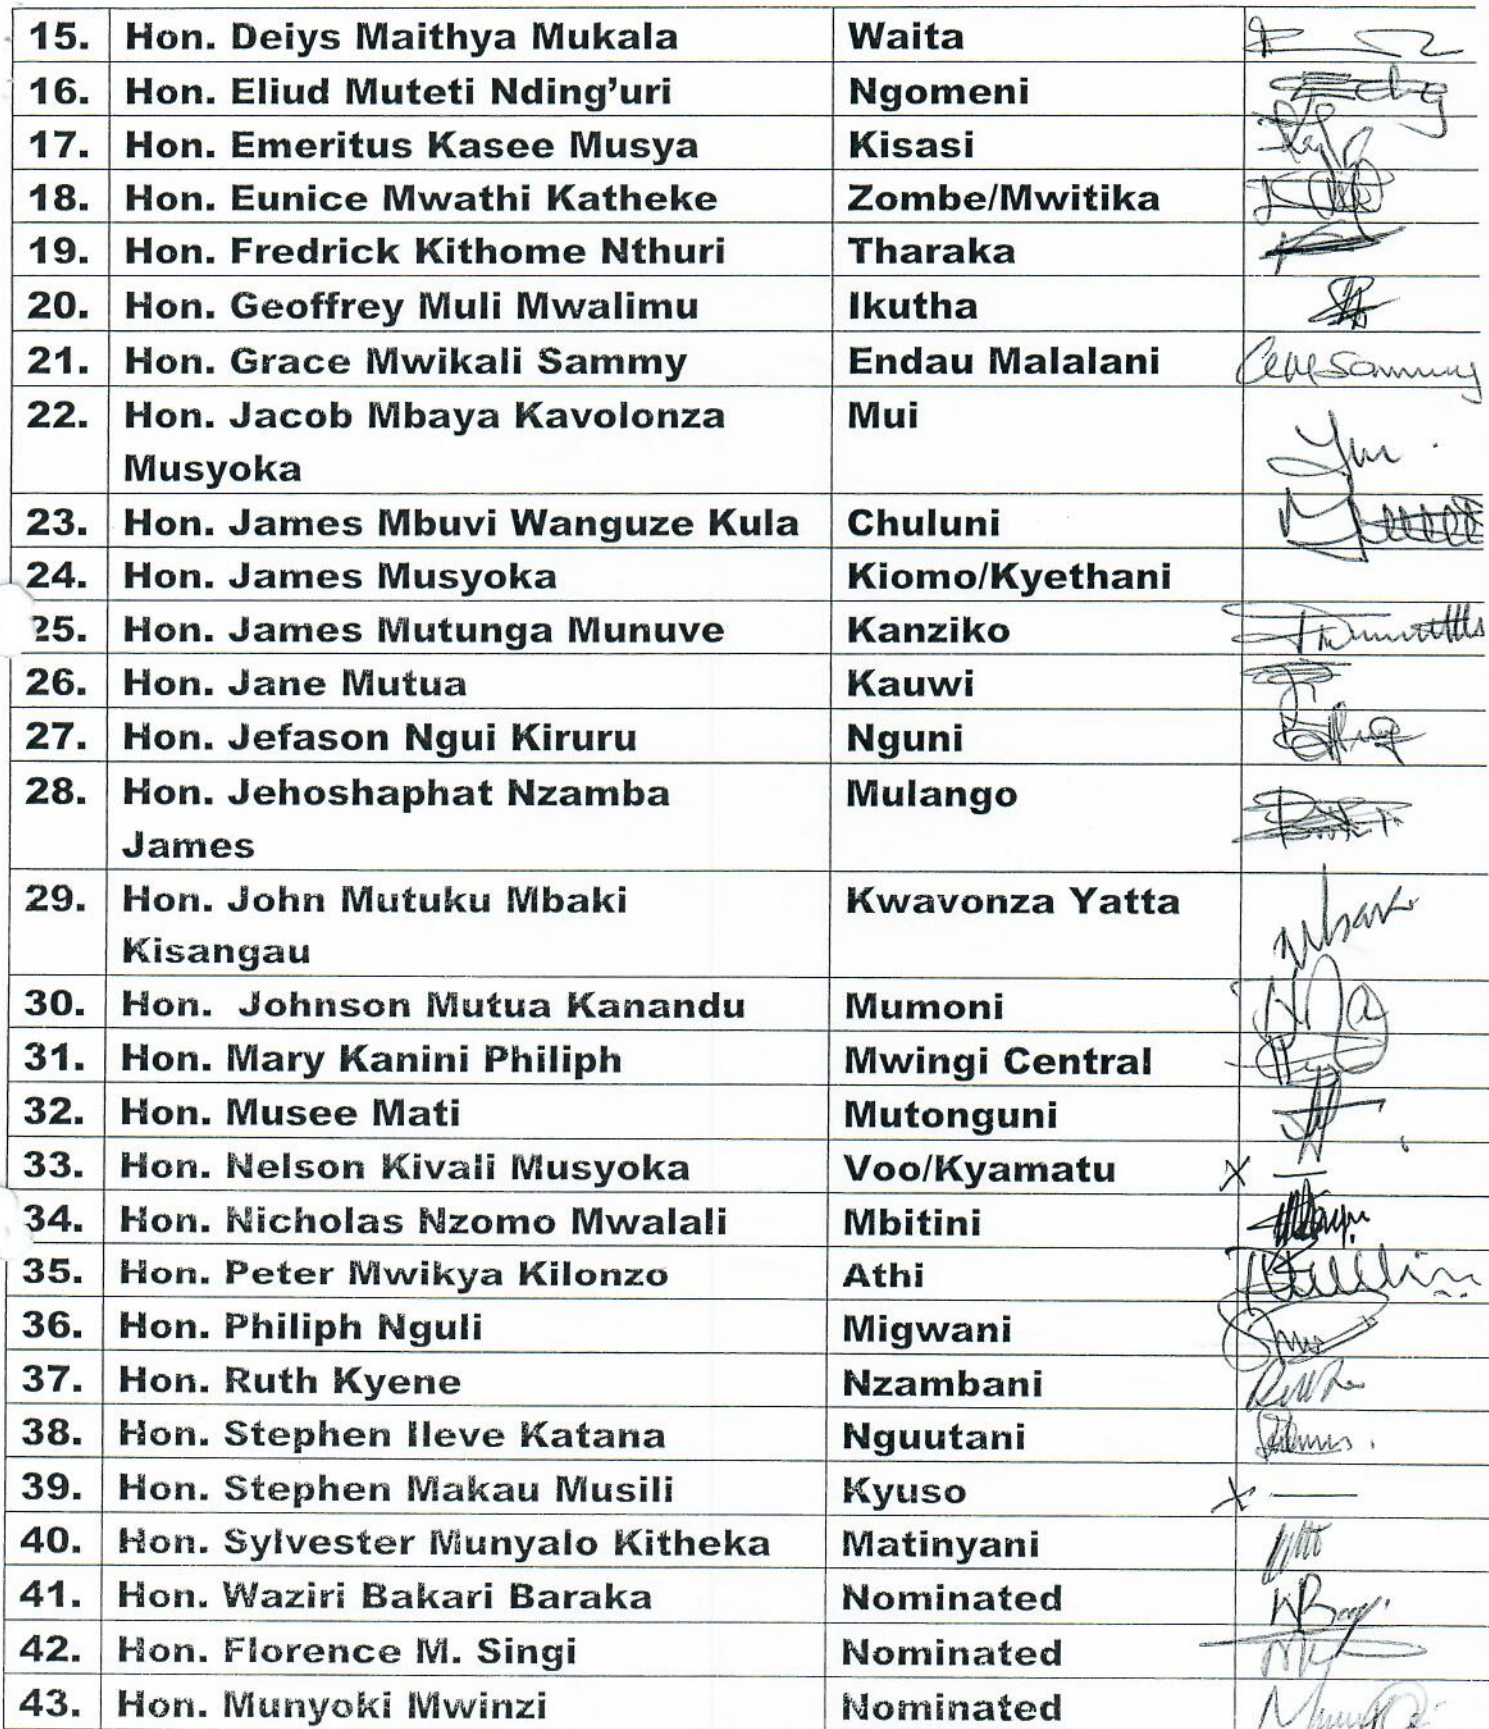 15. Hon. Deiys Maithya Mukala Waita
16. Hon. Eliud Muteti Nding’uri Ngomeni
17. Hon. Emeritus Kasee Musya Kisasi
18. Hon. Eunice Mwathi Katheke Zombe/Mwitika
19. Hon. Fredrick Kithome Nthuri Tharaka
20. Hon. Geoffrey Muli Mwalimu Ikutha
21. Hon. Grace Mwikali Sammy Endau Malalani
22. Hon. Jacob Mbaya Kavolonza Mui
Musyoka
23. Hon. James Mbuvi Wanguze Kula Chuluni
24. Hon. James Musyoka Kiomo/Kyethani
25. Hon. James Mutunga Munuve Kanziko
26. Hon. Jane Mutua Kauwi
27. Hon. Jefason Ngui Kiruru Nguni
28. Hon. Jehoshaphat Nzamba Mulango
James
29. Hon. John Mutuku Mbaki Kwavonza Yatta
Kisangau
30. Hon. Johnson Mutua Kanandu Mumoni
31. Hon. Mary Kanini Philiph Mwingi Central
32. Hon. Musee Mati Mutonguni
33. Hon. Nelson Kivali Musyoka Voo/Kyamatu X —
34. Hon. Nicholas Nzomo Mwalali Mbitini
35. Hon. Peter Mwikya Kilonzo Athi
36. Hon. Philiph Nguli Migwani
37. Hon. Ruth Kyene Nzambani
38. Hon. Stephen Ileve Katana Nguutani
39. Hon. Stephen Makau Musili Kyuso X —
40. Hon. Sylvester Munyalo Kitheka Matinyani
41. Hon. Waziri Bakari Baraka Nominated
42. Hon. Florence M. Singi Nominated
43. Hon. Munyoki Mwinzi Nominated